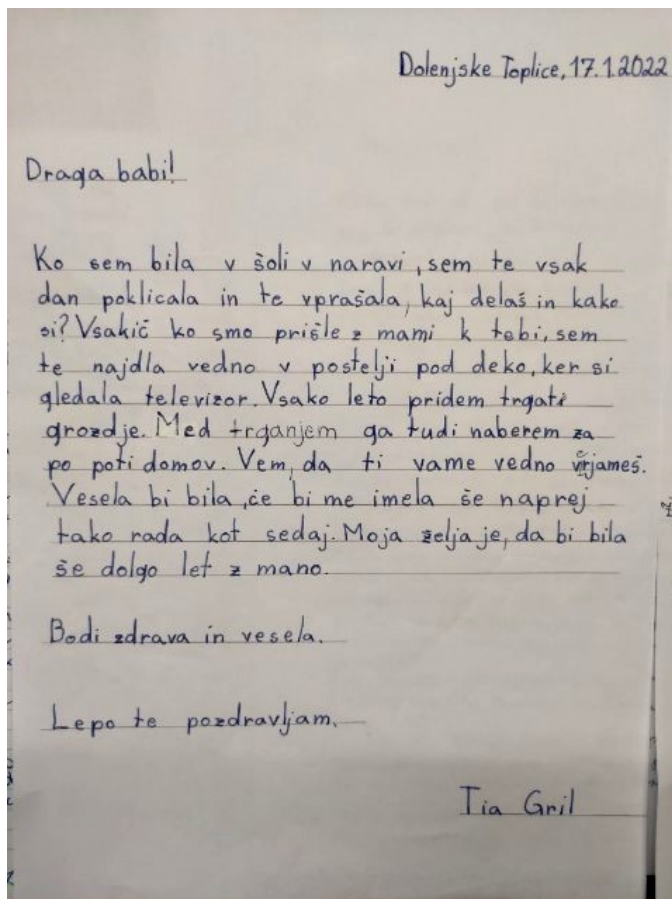 Dolenjske Toplice, 17.1.2022
Draga babi!
Ko sem bila v šoli v naravi, sem te vsak
dan poklicala in te vprašala, kaj delaš in kako
si? Vsakič ko smo prišle z mami k tebi, sem
te najdla vedno v postelji pod deko, ker si
gledala televizor. Vsako leto pridem trgati
grozdje. Med trganjem ga tudi naberem za
po poti domov. Vem, da ti vame vedno vrjameš.
Vesela bi bila, če bi me imela še naprej
tako rada kot sedaj. Moja želja je, da bi bila
še dolgo let z mano.
Bodi zdrava in vesela.
Lepo te pozdravljam.
Tia Gril